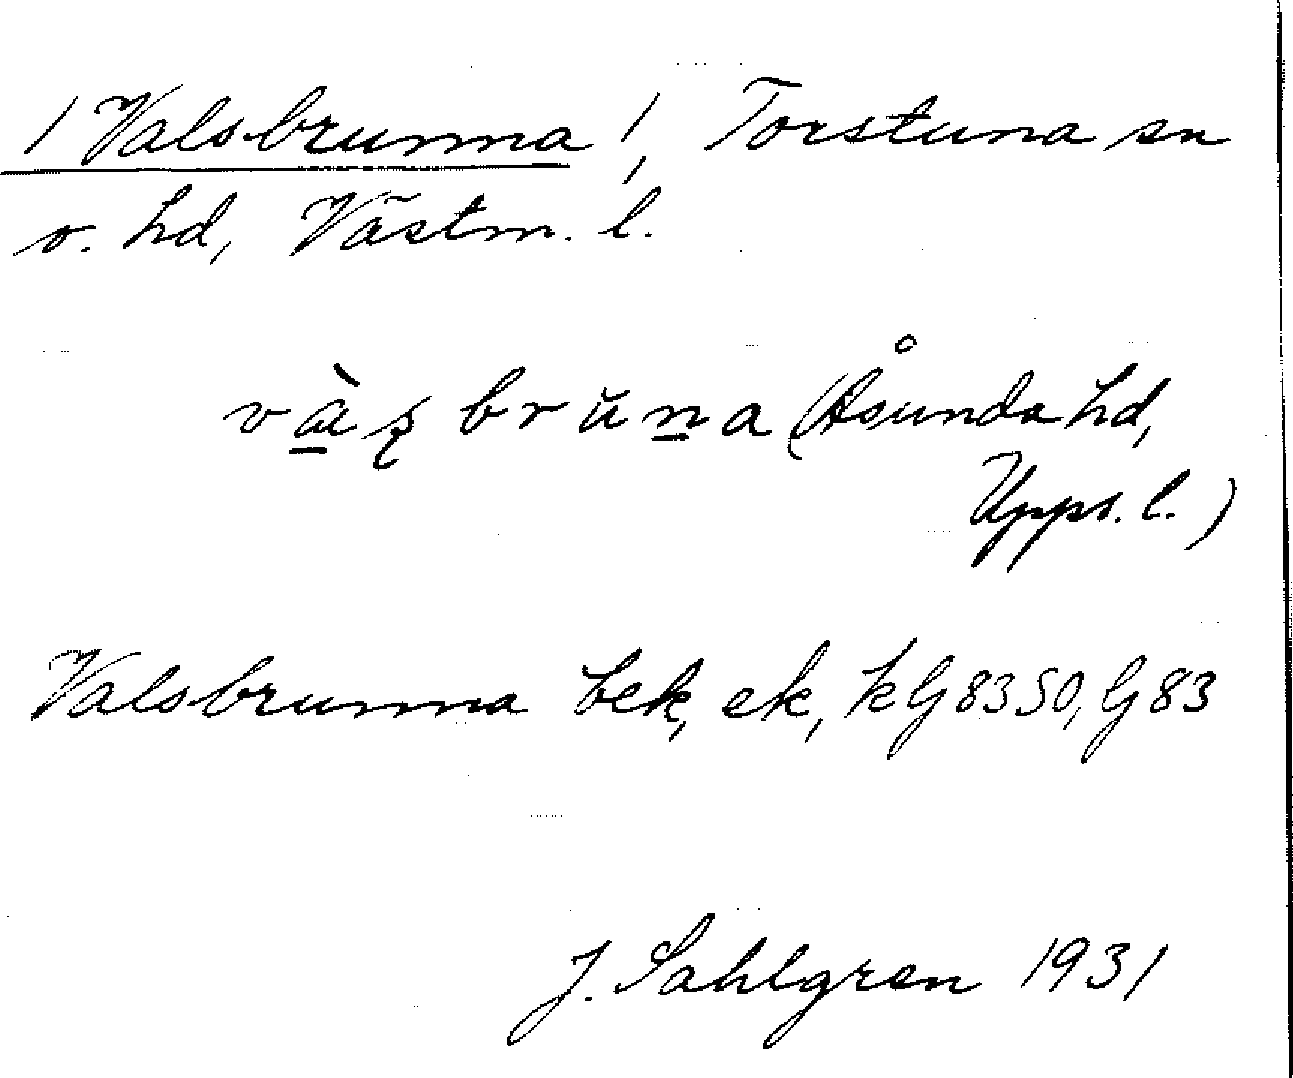 / Valsbrunna /, Torstuna sn
o. hd, Västm. l.
bruna (Åsunda hd,
Upps. l.)
Valsbrunna bek, ek, k G 83 50, G 83
J. Sahlgren 1931